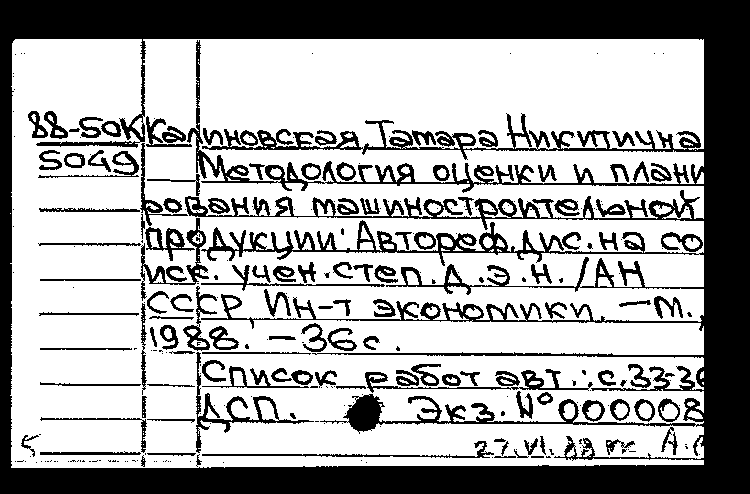 88-50К Калиновская, Тамара Никитична
5049 Методология оценки и плани
рования машиностроительной
продукции: Автореф. дис. на со
иск. учен. степ. д. э. н. / АН
СССР, Ин-т экономики. — М.,
1988. — 36 с.
Список работ авт.: с. 33-36
ДСП. Экз. № 000008
5 27.VI.88